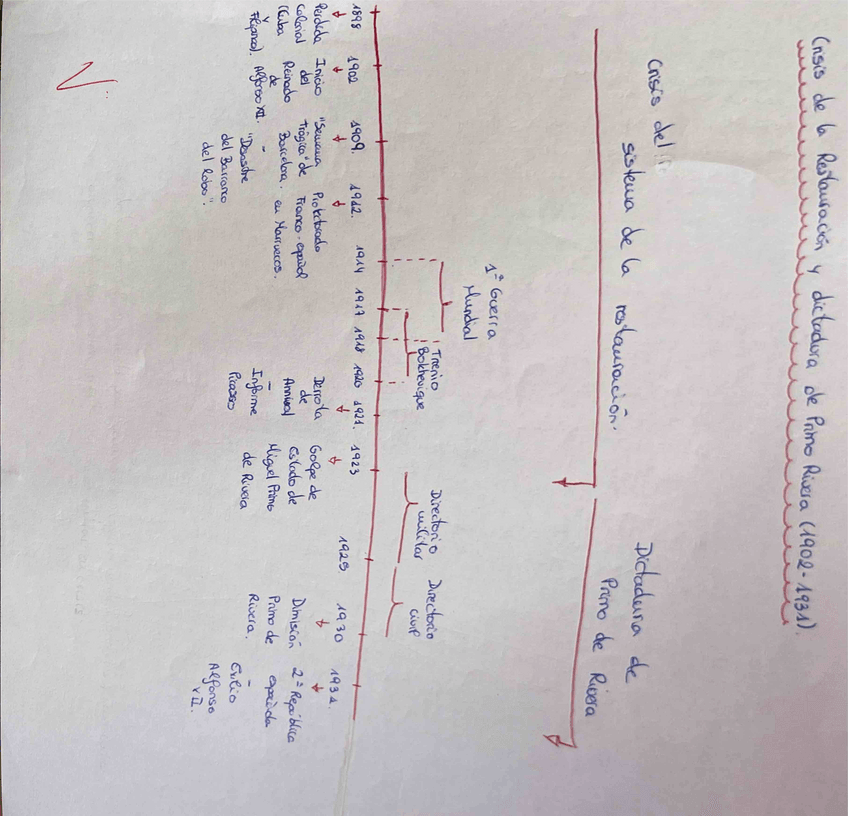 Crisis de la Restauración y dictadura de Primo Rivera (1902-1931).
Crisis del
sistema de la restauración.
Dictadura de
Primo de Rivera
1ª Guerra
Mundial
Trienio
Bolchevique
Directorio
militar
Directorio
civil
1898
Perdida
Colonial
(Cuba
y
Filipinas).
1902
Inicio
del
Reinado
de
Alfonso XII.
1909.
"Semana
trágica" de
Barcelona.
-
"Desastre
del Barranco
del Lobo".
1912.
Protectorado
Franco-español
en Marruecos.
1914
1917
1918
1920
1921.
Derrota
de
Annual
-
Informe
Picasso
1923
Golpe de
Estado de
Miguel Primo
de Rivera
1925
1930
Dimisión
Primo de
Rivera.
1931.
2ª República
española
-
Exilio
Alfonso
XII.